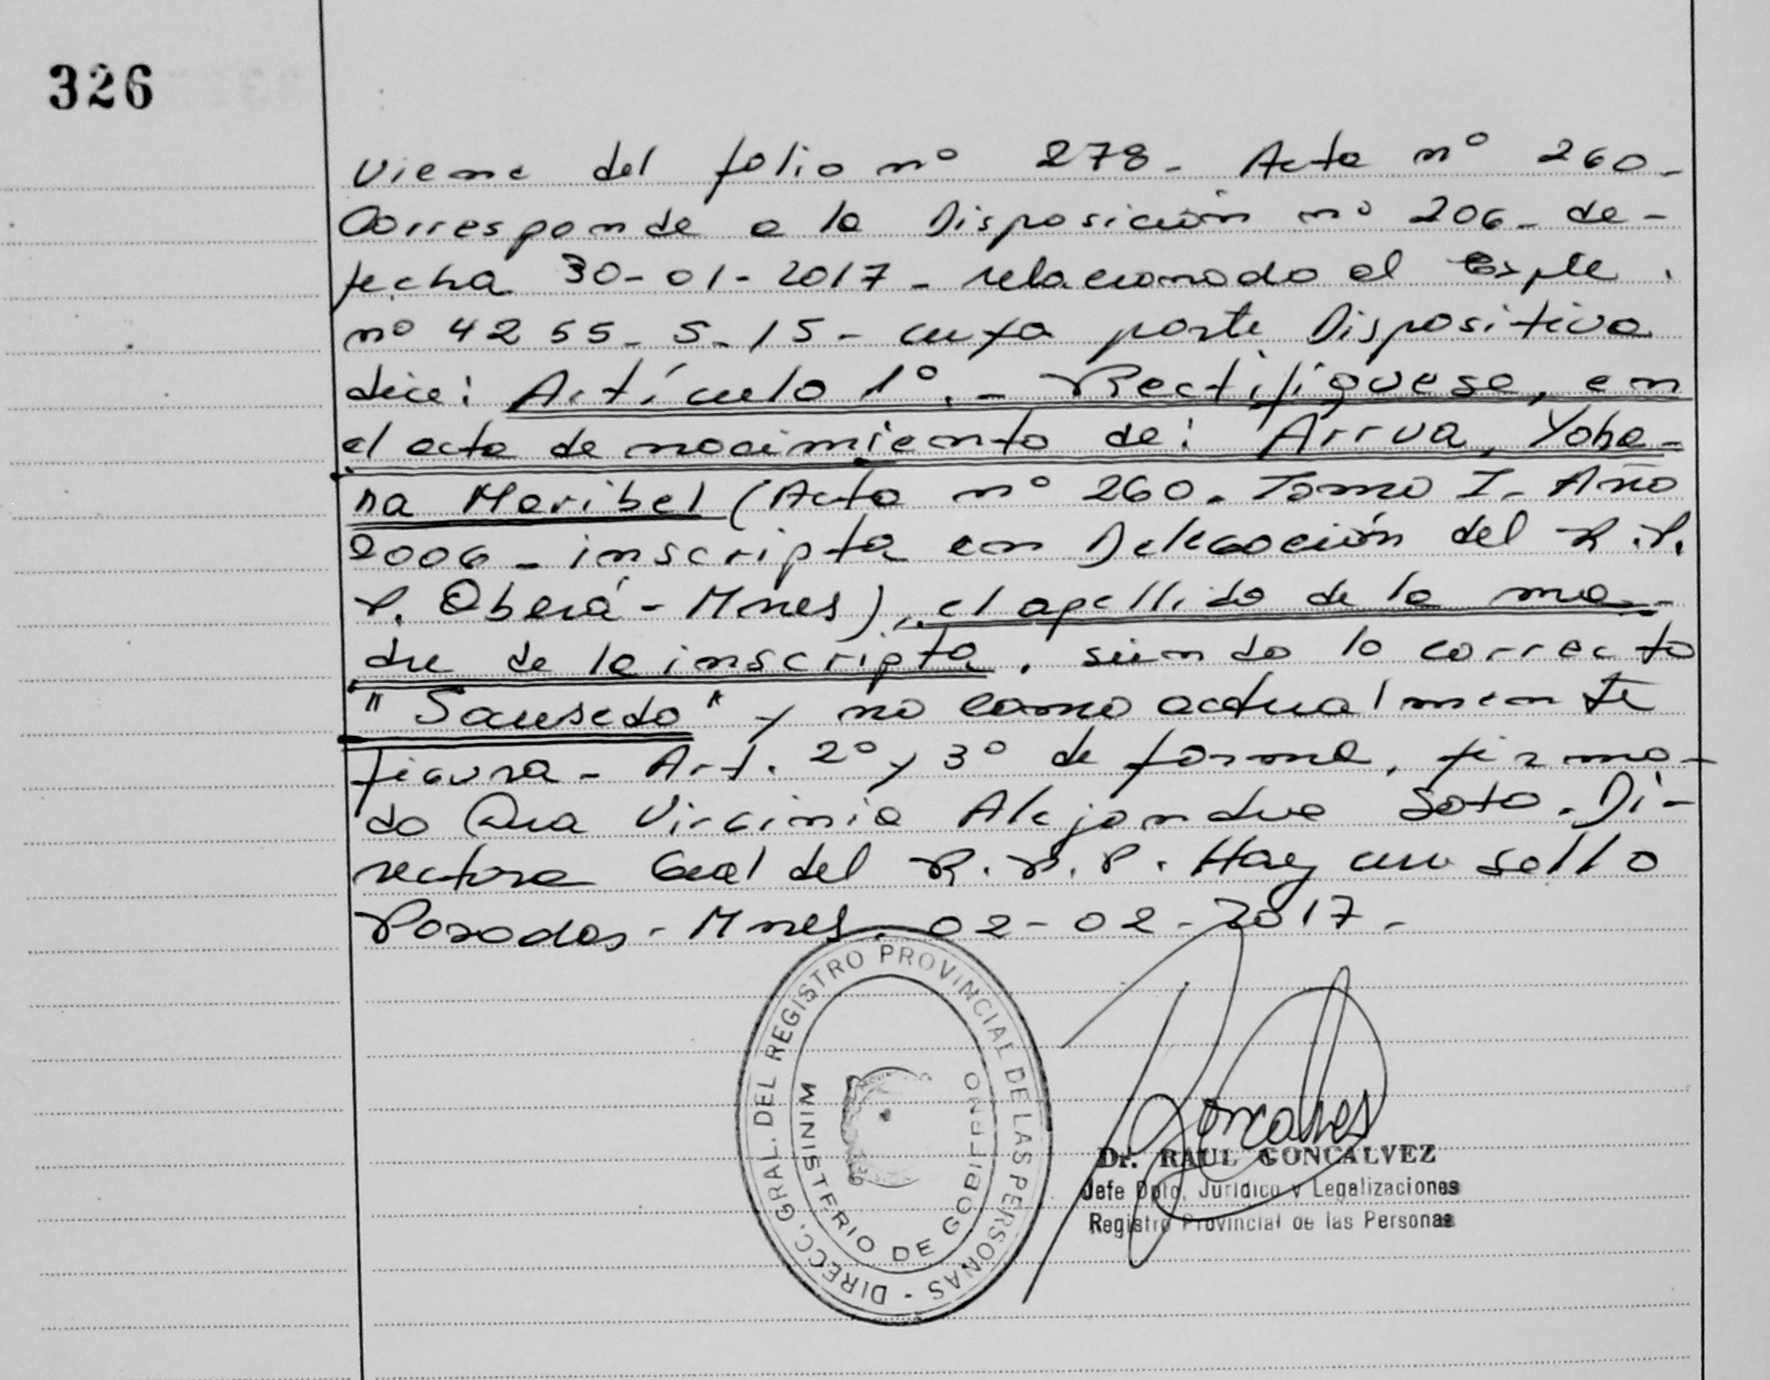 326
Viene del folio nº 278- Acta nº 260-
Corresponde a la Disposición nº 206- de-
fecha 30-01-2017- relacionado al Expte.
nº 4255-S-15- cuya parte Dispositiva
dice: Artículo 1º.- Rectifíquese, en
el acta de nacimiento de: Arrua, Yoha-
na Maribel (Acta nº 260. Tomo I- Año
2006- inscripta en Delegación del R.P.
P. Oberá-Mnes), el apellido de la ma-
dre de la inscripta, siendo lo correcto
"Sauseda" y no como actualmente
figura- Art. 2º y 3º de forma, firma-
do Dra Virginia Alejandra Soto. Di-
rectora Gral del R.P.P. Hay un sello
Posadas-Mnes. 02-02-2017-
DIRECC. GRAL. DEL REGISTRO PROVINCIAL DE LAS PERSONAS -
MINISTERIO DE GOBIERNO
Goncalves
Dr. RAUL GONCALVEZ
Jefe Dpto. Jurídico y Legalizaciones
Registro Provincial de las Personas